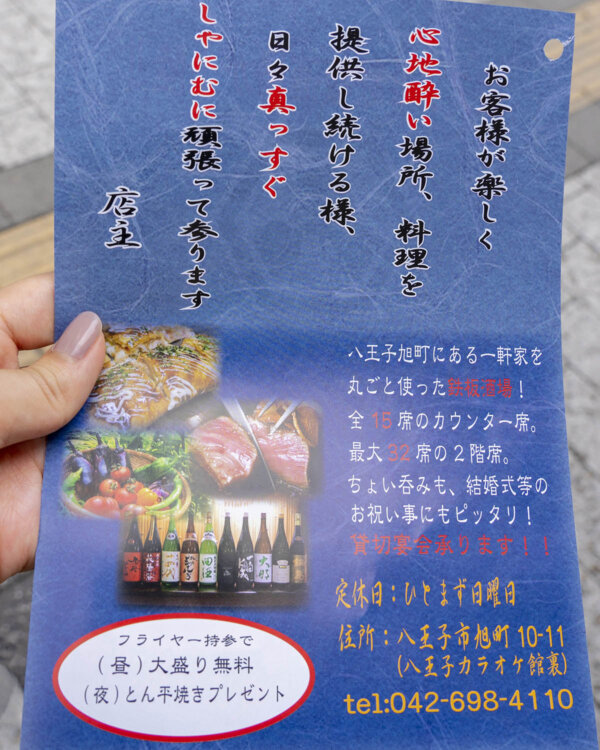 お客様が楽しく
心地酔い場所、料理を
提供し続ける様、
日々真っすぐ
しゃにむに頑張って参ります
店主
八王子旭町にある一軒家を
丸ごと使った鉄板酒場！
全15席のカウンター席。
最大32席の2階席。
ちょい呑みも、結婚式等の
お祝い事にもピッタリ！
貸切宴会承ります！！
定休日：ひとまず日曜日
住所：八王子市旭町10-11
(八王子カラオケ館裏)
tel:042-698-4110
フライヤー持参で
(昼)大盛り無料
(夜)とん平焼きプレゼント